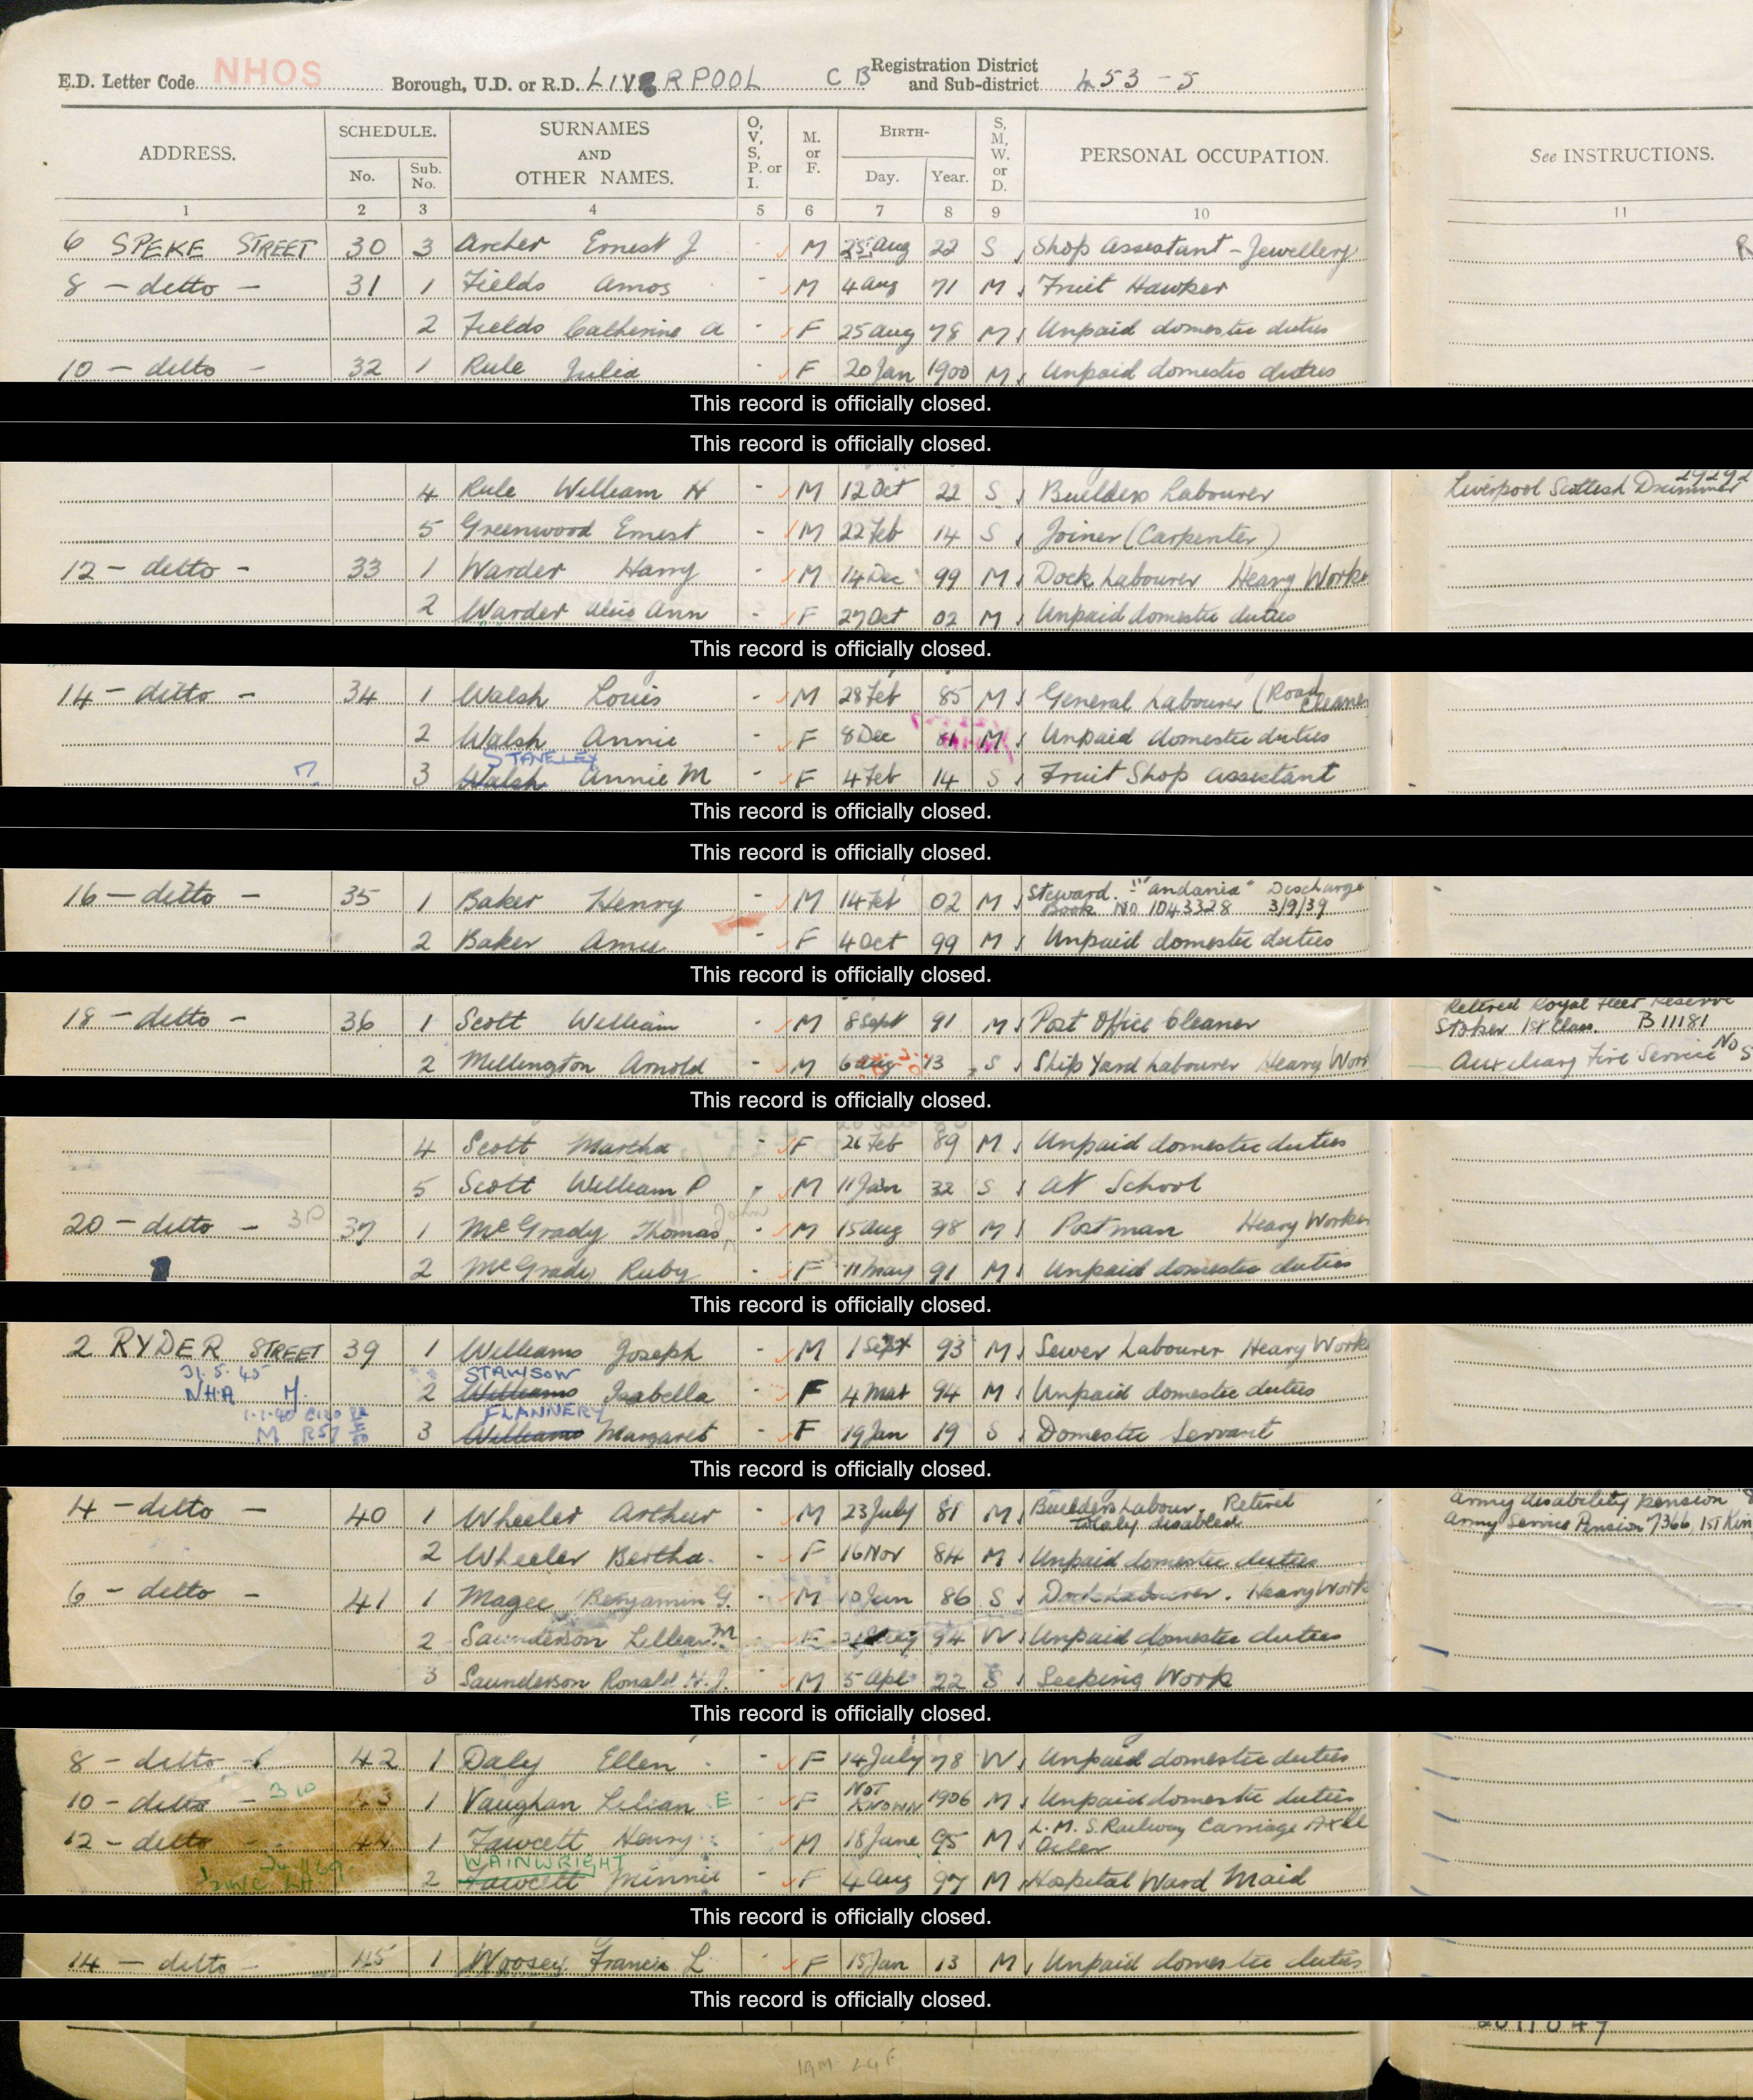 E.D. Letter Code NHOS Borough, U.D. or R.D. LIVERPOOL C B Registration District and Sub-district 453 - 5
ADDRESS. SCHEDULE. No. Sub. No. SURNAMES AND OTHER NAMES. O, V, S, P. or I. M. or F. BIRTH- Day. Year. S, M, W. or D. PERSONAL OCCUPATION. See INSTRUCTIONS.
1 2 3 4 5 6 7 8 9 10 11
6 SPEKE STREET 30 3 Archer Ernest J - M 25 Aug 22 S Shop Assistant - Jewellery R
8 - ditto - 31 1 Fields Amos M 4 Aug 71 M Fruit Hawker
2 Fields Catherine A - F 25 Aug 78 M Unpaid domestic duties
10 - ditto - 32 1 Rule Julia - F 20 Jan 1900 M Unpaid domestic duties
This record is officially closed.
This record is officially closed.
4 Rule William H - M 12 Oct 22 S Builders Labourer Liverpool Scottish Drummer
5 Greenwood Ernest - M 22 Feb 14 S Joiner (Carpenter)
12 - ditto - 33 1 Warder Harry - M 14 Dec 99 M Dock Labourer Heavy Worke
2 Warder Ann - F 27 Oct 02 M Unpaid domestic duties
This record is officially closed.
14 - ditto - 34 1 Walsh Louis - M 28 Feb 85 M General Labourer (Road Cleaner
2 Walsh Annie - F 8 Dec 81 M Unpaid domestic duties
STAVELEY
3 Walsh Annie M - F 4 Feb 14 S Fruit Shop Assistant
This record is officially closed.
This record is officially closed.
16 - ditto - 35 1 Baker Henry - M 14 Feb 02 M Steward. - "Andania" Discharge
Book No 1043328 3/9/39
2 Baker - F 4 Oct 99 M Unpaid domestic duties
This record is officially closed.
Retired Royal Fleet Reserve
18 - ditto - 36 1 Scott William - M 8 Sept 91 M Post Office Cleaner Stoker 1st Class. B 11181
2 Millington Arnold - M 6 Aug 13 S Ship Yard Labourer Heavy Wor Auxiliary Fire Service No S
This record is officially closed.
4 Scott Martha - F 26 Feb 89 M Unpaid domestic duties
5 Scott William P - M 11 Jan 32 S At School
John
20 - ditto - 3P 37 1 McGrady Thomas - M 15 Aug 98 M Postman Heavy Worker
2 McGrady Ruby - F 11 May 91 M Unpaid domestic duties
This record is officially closed.
2 RYDER STREET 39 1 Williams Joseph - M 1 Sept 93 M Sewer Labourer Heavy Worke
31.5.45 STAWSON
NHA M. 2 Williams Isabella - F 4 Mar 94 M Unpaid domestic duties
FLANNERY
M R57 3 Williams Margaret - F 19 Jan 19 S Domestic Servant
This record is officially closed.
4 - ditto - 40 1 Wheeler Arthur - M 23 July 81 M Builders Labour. Retired Army disability pension
totaly disabled Army Service Pension 7366, 1st Kin
2 Wheeler Bertha. - F 16 Nov 84 M Unpaid domestic duties
6 - ditto - 41 1 Magee Benjamin G. - M 10 Jun 86 S Dock Labourer. Heavy Work
2 Saunderson Lillian M - F 94 W Unpaid domestic duties
3 Saunderson Ronald H. J. M 5 Apl 22 S Seeking Work
This record is officially closed.
8 - ditto - 42 1 Daly Ellen - F 14 July 78 W Unpaid domestic duties
10 - ditto - 43 1 Vaughan Lilian E F NOT KNOWN 1906 M Unpaid domestic duties
12 - ditto - 44 1 Fawcett Henry M 18 June 95 M L.M.S. Railway Carriage Axle
Oiler
WAINWRIGHT
2 Fawcett Minnie - F 4 Aug 97 M Hospital Ward Maid
This record is officially closed.
14 - ditto - 45 1 Woosey Francis L F 15 Jan 13 M Unpaid domestic duties
This record is officially closed.
19M 24F